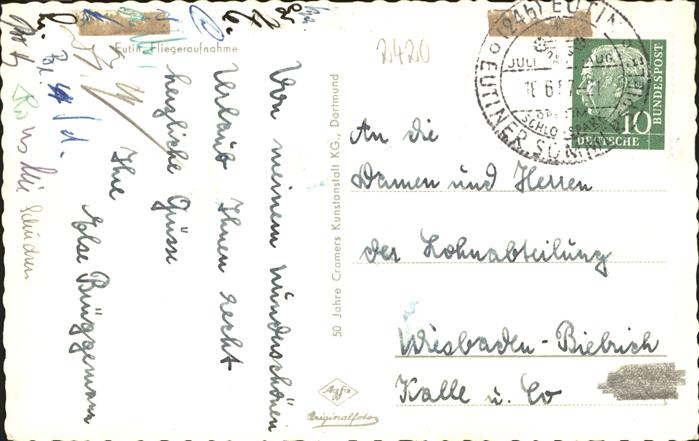 Eutin, Fliegeraufnahme
2420
Von meinem wunderschönen
Urlaub Ihnen recht
herzliche Grüsse
Ihre
Else Brüggemann
50 Jahre Cramers Kunstanstalt KG., Dortmund
Agfa
Originalfoto
(24b) EUTIN
JULI AUG.
EUTINER SOMMERSPIELE
10
DEUTSCHE
BUNDESPOST
An die
Damen und Herren
der Lohnabteilung
Wiesbaden-Biebrich
Kalle u. Co